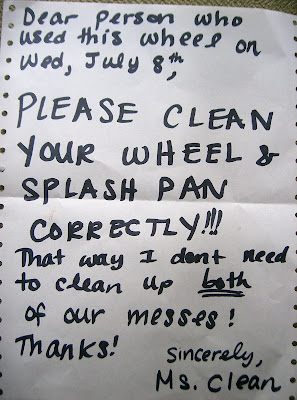 Dear person who
used this wheel on
Wed, July 8th,
PLEASE CLEAN
YOUR WHEEL &
SPLASH PAN
CORRECTLY!!!
That way I dont need
to clean up both
of our messes!
Thanks!
Sincerely,
Ms. Clean